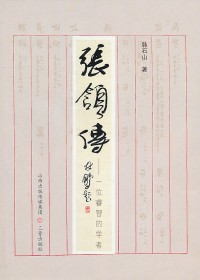 韩石山 著
張頷傳
——一位睿智的学者
林鵬題
山西出版传媒集团
三晋出版社